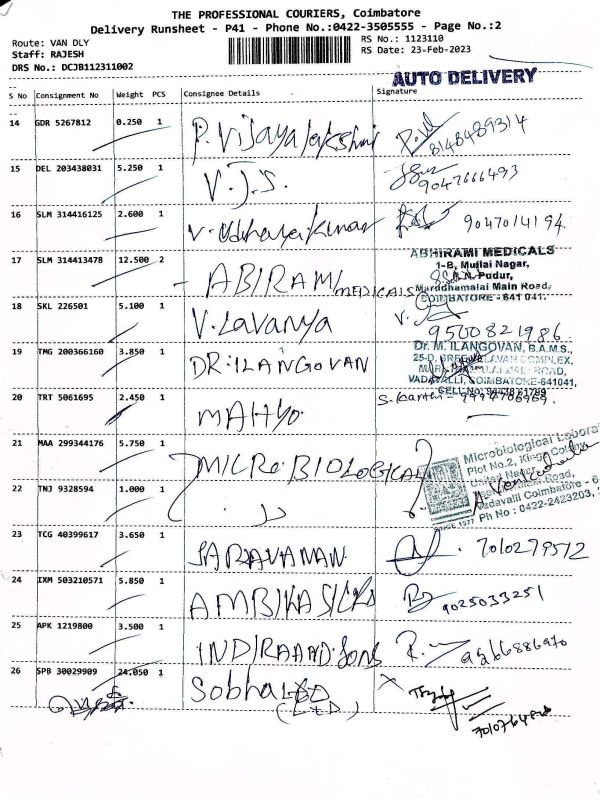 THE PROFESSIONAL COURIERS, Coimbatore
Delivery Runsheet - P41 - Phone No.:0422-3505555 - Page No.:2
Route: VAN DLY
RS No.: 1123110
Staff: RAJESH
RS Date: 23-Feb-2023
DRS No.: DCJB112311002
AUTO DELIVERY
S No Consignment No Weight PCS Consignee Details Signature
14 GDR 5267812 0.250 1 P. Vijayalakshmi 8148489314
15 DEL 203438031 5.250 1 V.J.S. 9047666493
16 SLM 314416125 2.600 1 V. Udhayakumar 9047014194
17 SLM 314413478 12.500 2 ABIRAMI MEDICALS
ABHIRAMI MEDICALS
1-B, Mullai Nagar,
Pudur,
Marudhamalai Main Road,
COIMBATORE - 641 041.
18 SKL 226501 5.100 1 V. Lavanya 9500821986
19 TMG 200366160 3.850 1 DR: ILANGOVAN
Dr. M. ILANGOVAN, B.A.M.S.,
COMPLEX,
ROAD,
VADAVALLI, COIMBATORE-641041,
20 TRT 5061695 2.450 1 MAHYO
21 MAA 299344176 5.750 1 MICRO BIOLOGICAL
Microbiological
Plot No.2, Kings Colony,
Road,
Vadavalli Coimbatore - 6
Ph No : 0422-2423203,
SINCE 1977
22 TNJ 9328594 1.000 1
23 TCG 40399617 3.650 1 SARAVANAN 7010279512
24 IXM 503210571 5.850 1 AMBIKA SILKS 9025033251
25 APK 1219800 3.500 1 INDIRA AND. Sons 9566886970
26 SPB 30029909 24.050 1 Sobha LTD
(LTD)